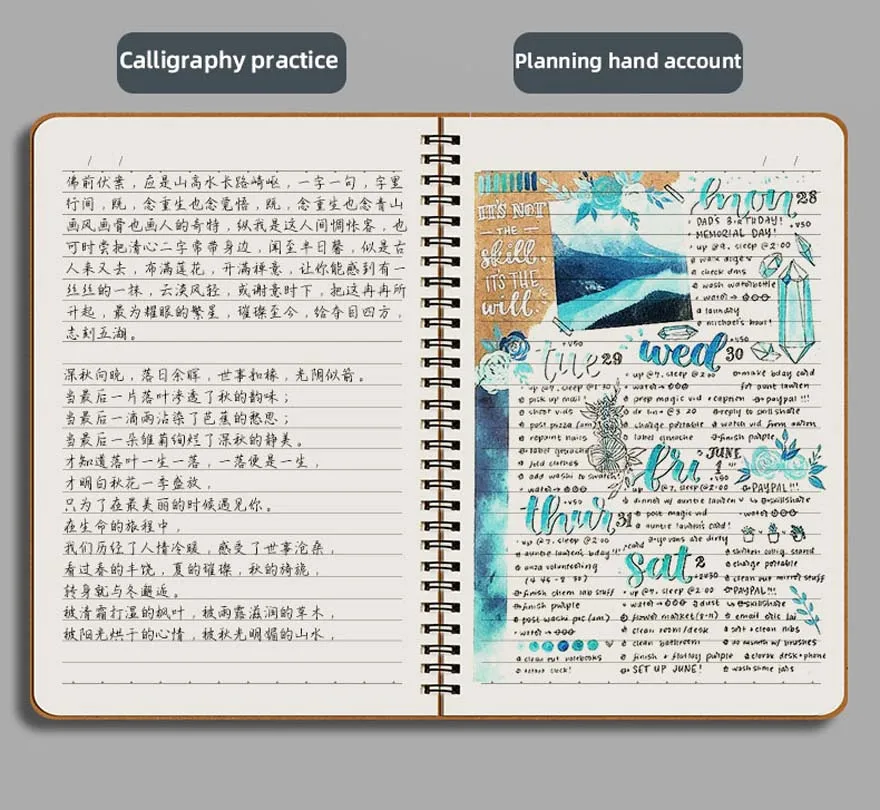 Calligraphy practice
Planning hand account
/ /
佛前伏案，应是山高水长路崎岖，一字一句，字里
行间，既，念重生也念觉悟，既，念重生也念青山
画风画骨也画人的奇特，纵我是这人间惆怅客，也
可时尝把清心二字常带身边，闲至半日馨，似是古
人来又去，布满莲花，升满禅意，让你能感到有一
丝丝的一抹，云淡风轻，或谢意时下，把这冉冉所
升起，最为耀眼的繁星，璀璨至今，给夺目四方，
志刻五湖。
深秋向晚，落日余晖，世事如棋，光阴似箭。
当最后一片落叶渗透了秋的韵味；
当最后一滴雨沾染了芭蕉的愁思；
当最后一朵雏菊绚烂了深秋的静美。
才知道落叶一生一落，一落便是一生，
才明白秋花一季盛放，
只为了在最美丽的时候遇见你。
在生命的旅程中，
我们历经了人情冷暖，感受了世事沧桑，
看过春的丰饶，夏的璀璨，秋的旖旎，
转身就与冬邂逅。
被清霜打湿的枫叶，被雨露滋润的草木，
被阳光烘干的心情，被秋光明媚的山水，
/ /
IT'S NOT
THE
skill.
IT'S THE
will.
mon 28
DAD'S BIRTHDAY!
MEMORIAL DAY!
up @9, sleep @2:00
check dms
wash waterbottle
water →
laundry
michael's haul!
tue 29
pick up mail
repaint nails
label gouache
fold clothes
add washi to swatch
wed 30
up @7, sleep @2:00
water →
prep magic vid + caption
dr lin @3:20
change portable
label gouache
make bday card
for aunt lauren
paypal !!!
reply to skillshare
watch vid from aaron
finish purple
thur 31
up @7, sleep @2:00
auntie lauren's bday!!
anza volunteering
(4:45-8:30)
finish chem lab stuff
finish purple
water →
clean out notebooks
fri JUNE 1
dinner w/ auntie lauren
post magic vid
auntie lauren's card!
PAYPAL!!!
water →
sat 2
up @7, sleep @2:00
water →
flower market (8-11)
clean room/desk
clean bathroom
finish + flatlay purple
SET UP JUNE!
change portable
clean out mirror stuff
PAYPAL!!!
skillshare
sort + clean nibs
clorox desk + phone